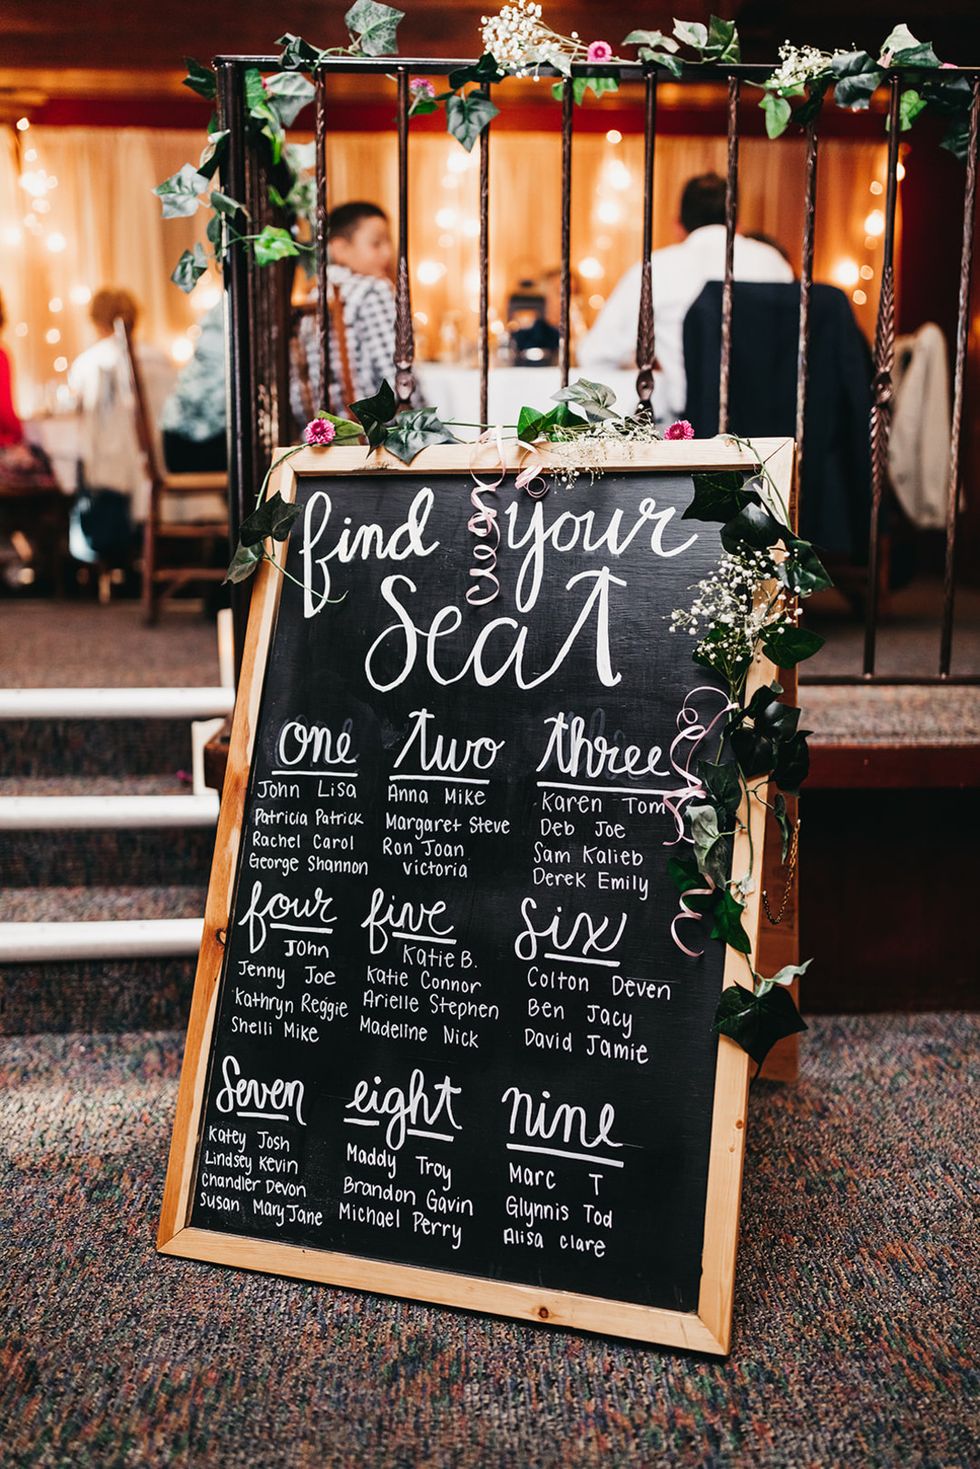 find your
Seat
one
John Lisa
Patricia Patrick
Rachel Carol
George Shannon
two
Anna Mike
Margaret Steve
Ron Joan
victoria
three
Karen Tom
Deb Joe
Sam Kalieb
Derek Emily
four
John
Jenny Joe
Kathryn Reggie
Shelli Mike
five
Katie B.
Katie Connor
Arielle Stephen
Madeline Nick
six
Colton Deven
Ben Jacy
David Jamie
Seven
Katey Josh
Lindsey Kevin
Chandler Devon
Susan MaryJane
eight
Maddy Troy
Brandon Gavin
Michael Perry
nine
Marc T
Glynnis Tod
Alisa Clare